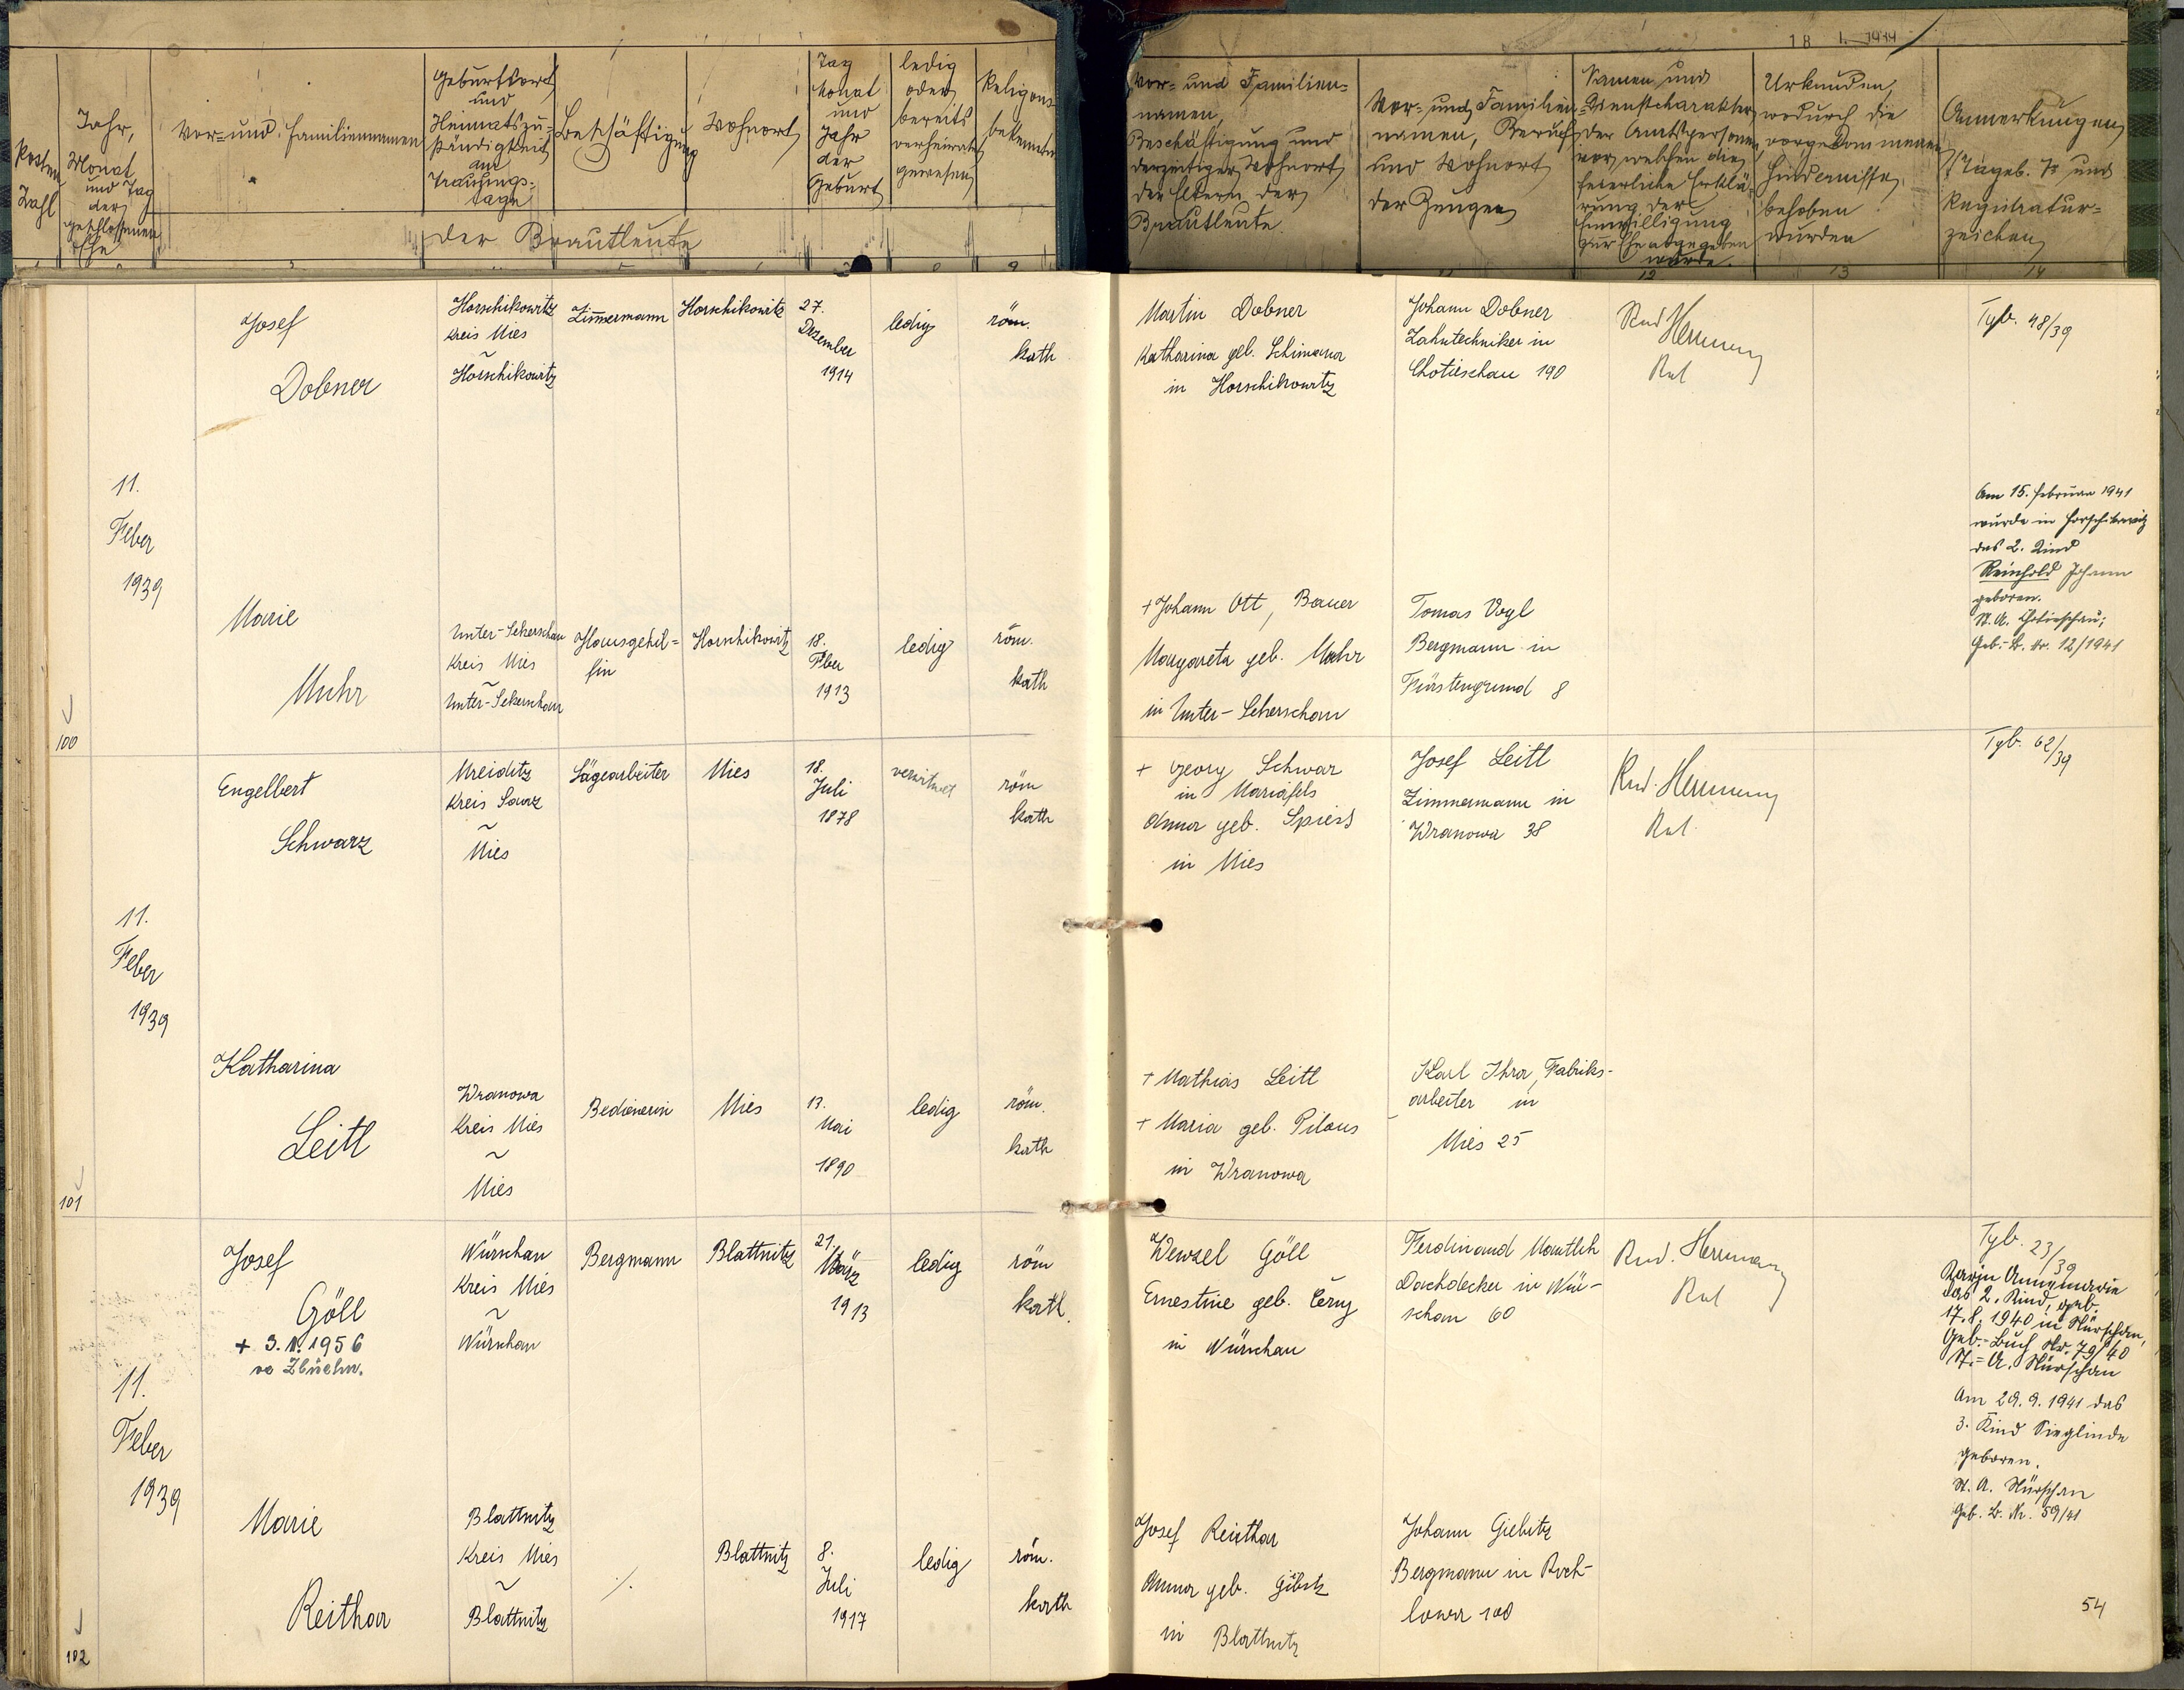 18 1. 1944
Posten
Zahl
Jahr,
Monat
und Tag
der
geschlossenen
Ehe
Vor- und Familiennamen
Geburtsort
und
Heimatszu-
ständigkeit
am
Trauungs-
tage
Beschäftigung
Wohnort
Tag
Monat
und
Jahr
der
Geburt
ledig
oder
bereits
verheiratet
gewesen
Religions-
bekenntnis
der Brautleute
Vor- und Familien-
namen,
Beschäftigung und
derzeitiger Wohnort
der Eltern der
Brautleute.
Vor- und Familien-
namen, Beruf
und Wohnort
der Zeugen
Namen und
Dienstcharakter
der Amtsperson
vor welcher die
feierliche Erklä-
rung der
Einwilligung
zur Ehe abgegeben
wurde.
Urkunden,
wodurch die
vorgekommenen
Hindernisse
behoben
wurden
Anmerkungen
Tageb. Nr und
Registratur-
zeichen
12
13
14
100
11.
Feber
1939
Josef
Dobner
Horschikowitz
Kreis Mies
~
Horschikowitz
Zimmermann
Horschikowitz
27.
Dezember
1914
ledig
röm.
kath
Martin Dobner
Katharina geb. Schimana
in Horschikowitz
Johann Dobner
Zahntechniker in
Chotieschau 190
Rud Herrmann
Rat
Tgb. 48/39
Am 15. Februar 1941
wurde in Horschikowitz
das 2. Kind
Reinhold Johann
geboren.
St. A. Chotieschau;
Geb.-B. Nr. 12/1941
Marie
Muhr
Unter-Sekerschan
Kreis Mies
~
Unter-Sekerschan
Hausgehil-
fin
Horschikowitz
18.
Feber
1913
ledig
röm.
kath
+ Johann Ott, Bauer
Margareta geb. Muhr
in Unter-Sekerschan
Tomas Vogl
Bergmann in
Fürstengrund 8
101
11.
Feber
1939
Engelbert
Schwarz
Kreis Saaz
~
Mies
Sägearbeiter
Mies
18.
Juli
1878
verwitwet
röm
kath
+ Georg Schwar
in Mariafels
Anna geb. Spiess
in Mies
Josef Leitl
Zimmermann in
Wranowa 38
Rud. Herrmann
Rat.
Tgb. 62/39
Katharina
Leitl
Wranowa
Kreis Mies
~
Mies
Bedienerin
Mies
13.
Mai
1890
ledig
röm.
kath
+ Mathias Leitl
+ Maria geb. Pilous
in Wranowa
Karl Ihra, Fabriks-
arbeiter in
Mies 25
102
11.
Feber
1939
Josef
Göll
+ 3.1.1956
ve Zbůchu.
Nürschan
Kreis Mies
~
Nürschan
Bergmann
Blattnitz
21.
März
1913
ledig
röm
kath.
Wenzel Göll
Ernestine geb. Černy
in Nürschan
Ferdinand Mautlch
Dachdecker in Nür-
schan 60
Rud. Herrmann
Rat
Tgb. 23/39
Karin Annemarie
das 2. Kind, geb.
17.8.1940 in Nürschan,
Geb.-Buch Nr. 79/40
St.-A. Nürschan
Am 29.9.1941 das
3. Kind Sieglinde
geboren.
St. A. Nürschan
Geb. B. Nr. 59/41
Marie
Reithar
Blattnitz
Kreis Mies
~
Blattnitz
./.
Blattnitz
8.
Juli
1917
ledig
röm.
kath
Josef Reithar
Anna geb. Gibitz
in Blattnitz
Johann Giebitz
Bergmann in Roch-
lowa 108
54